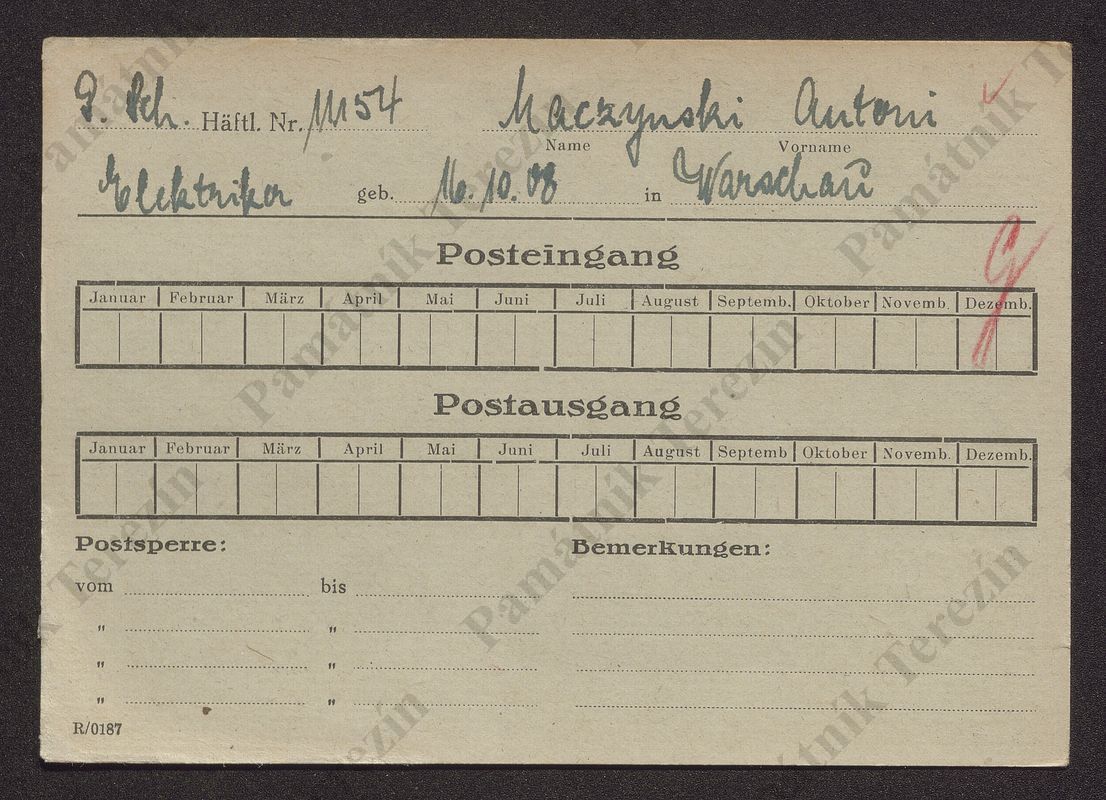 P. Sch. Häftl. Nr. 11154 Maczynski Antoni
Name Vorname
Elektriker geb. 16.10.08 in Warschau
Posteingang
Januar Februar März April Mai Juni Juli August Septemb. Oktober Novemb. Dezemb.
Postausgang
Januar Februar März April Mai Juni Juli August Septemb Oktober Novemb. Dezemb.
Postsperre: Bemerkungen:
vom bis
" "
" "
" "
R/0187
Památník Terezín